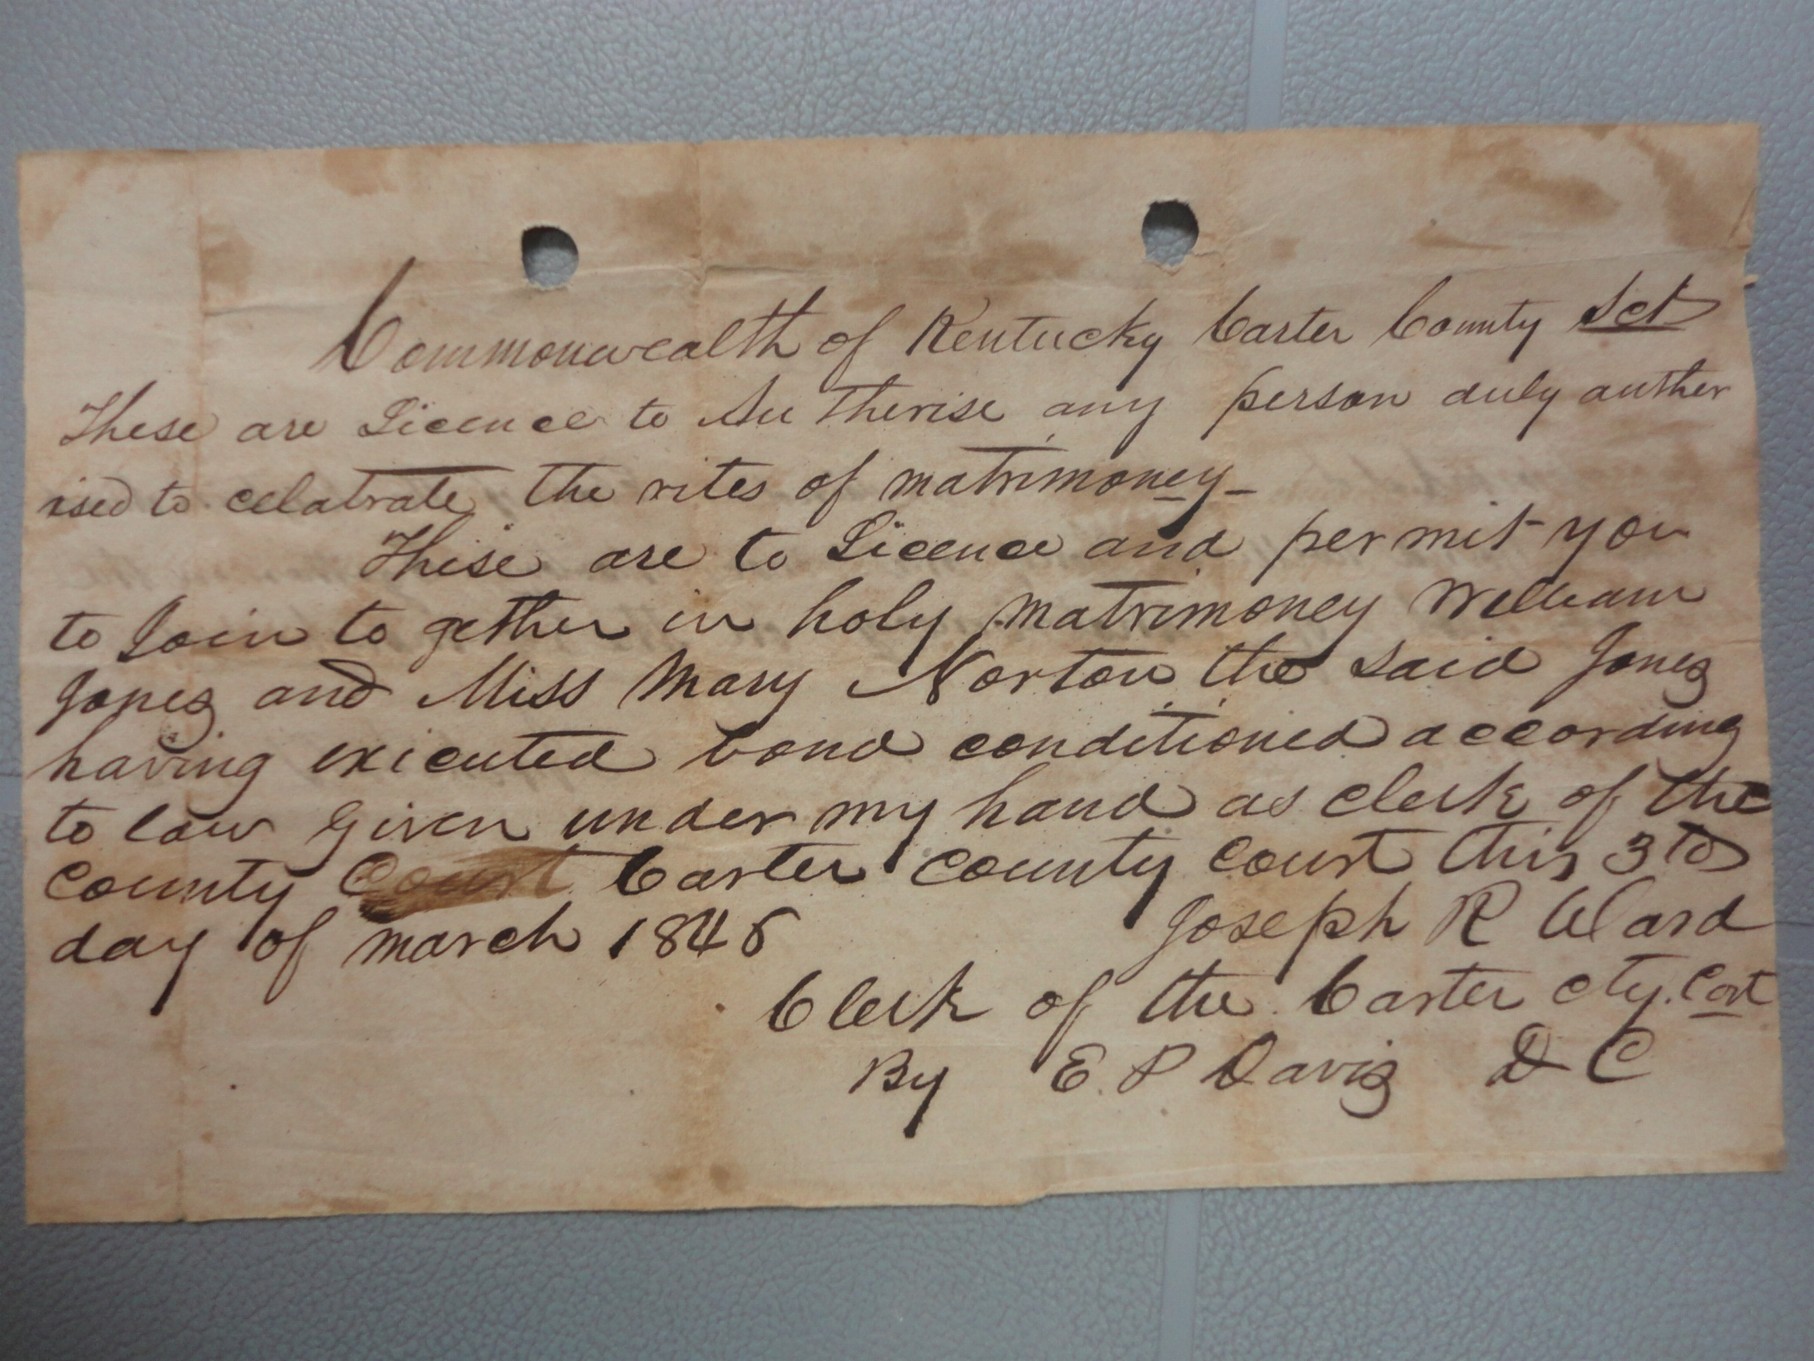 Commonwealth of Kentucky Carter County Sct
These are Licence to Autherise any person duly auther
ised to celatrate the rites of matrimoney
These are to Licence and permit you
to Join to gether in holy matrimoney William
Jones and Miss Mary Norton the said Jones
having exicuted bond conditioned according
to law Given under my hand as clerk of the
County Court Carter county court this 3td
day of march 1846
Joseph R Ward
Clerk of the Carter cty. Cort
By E. P Davis D C